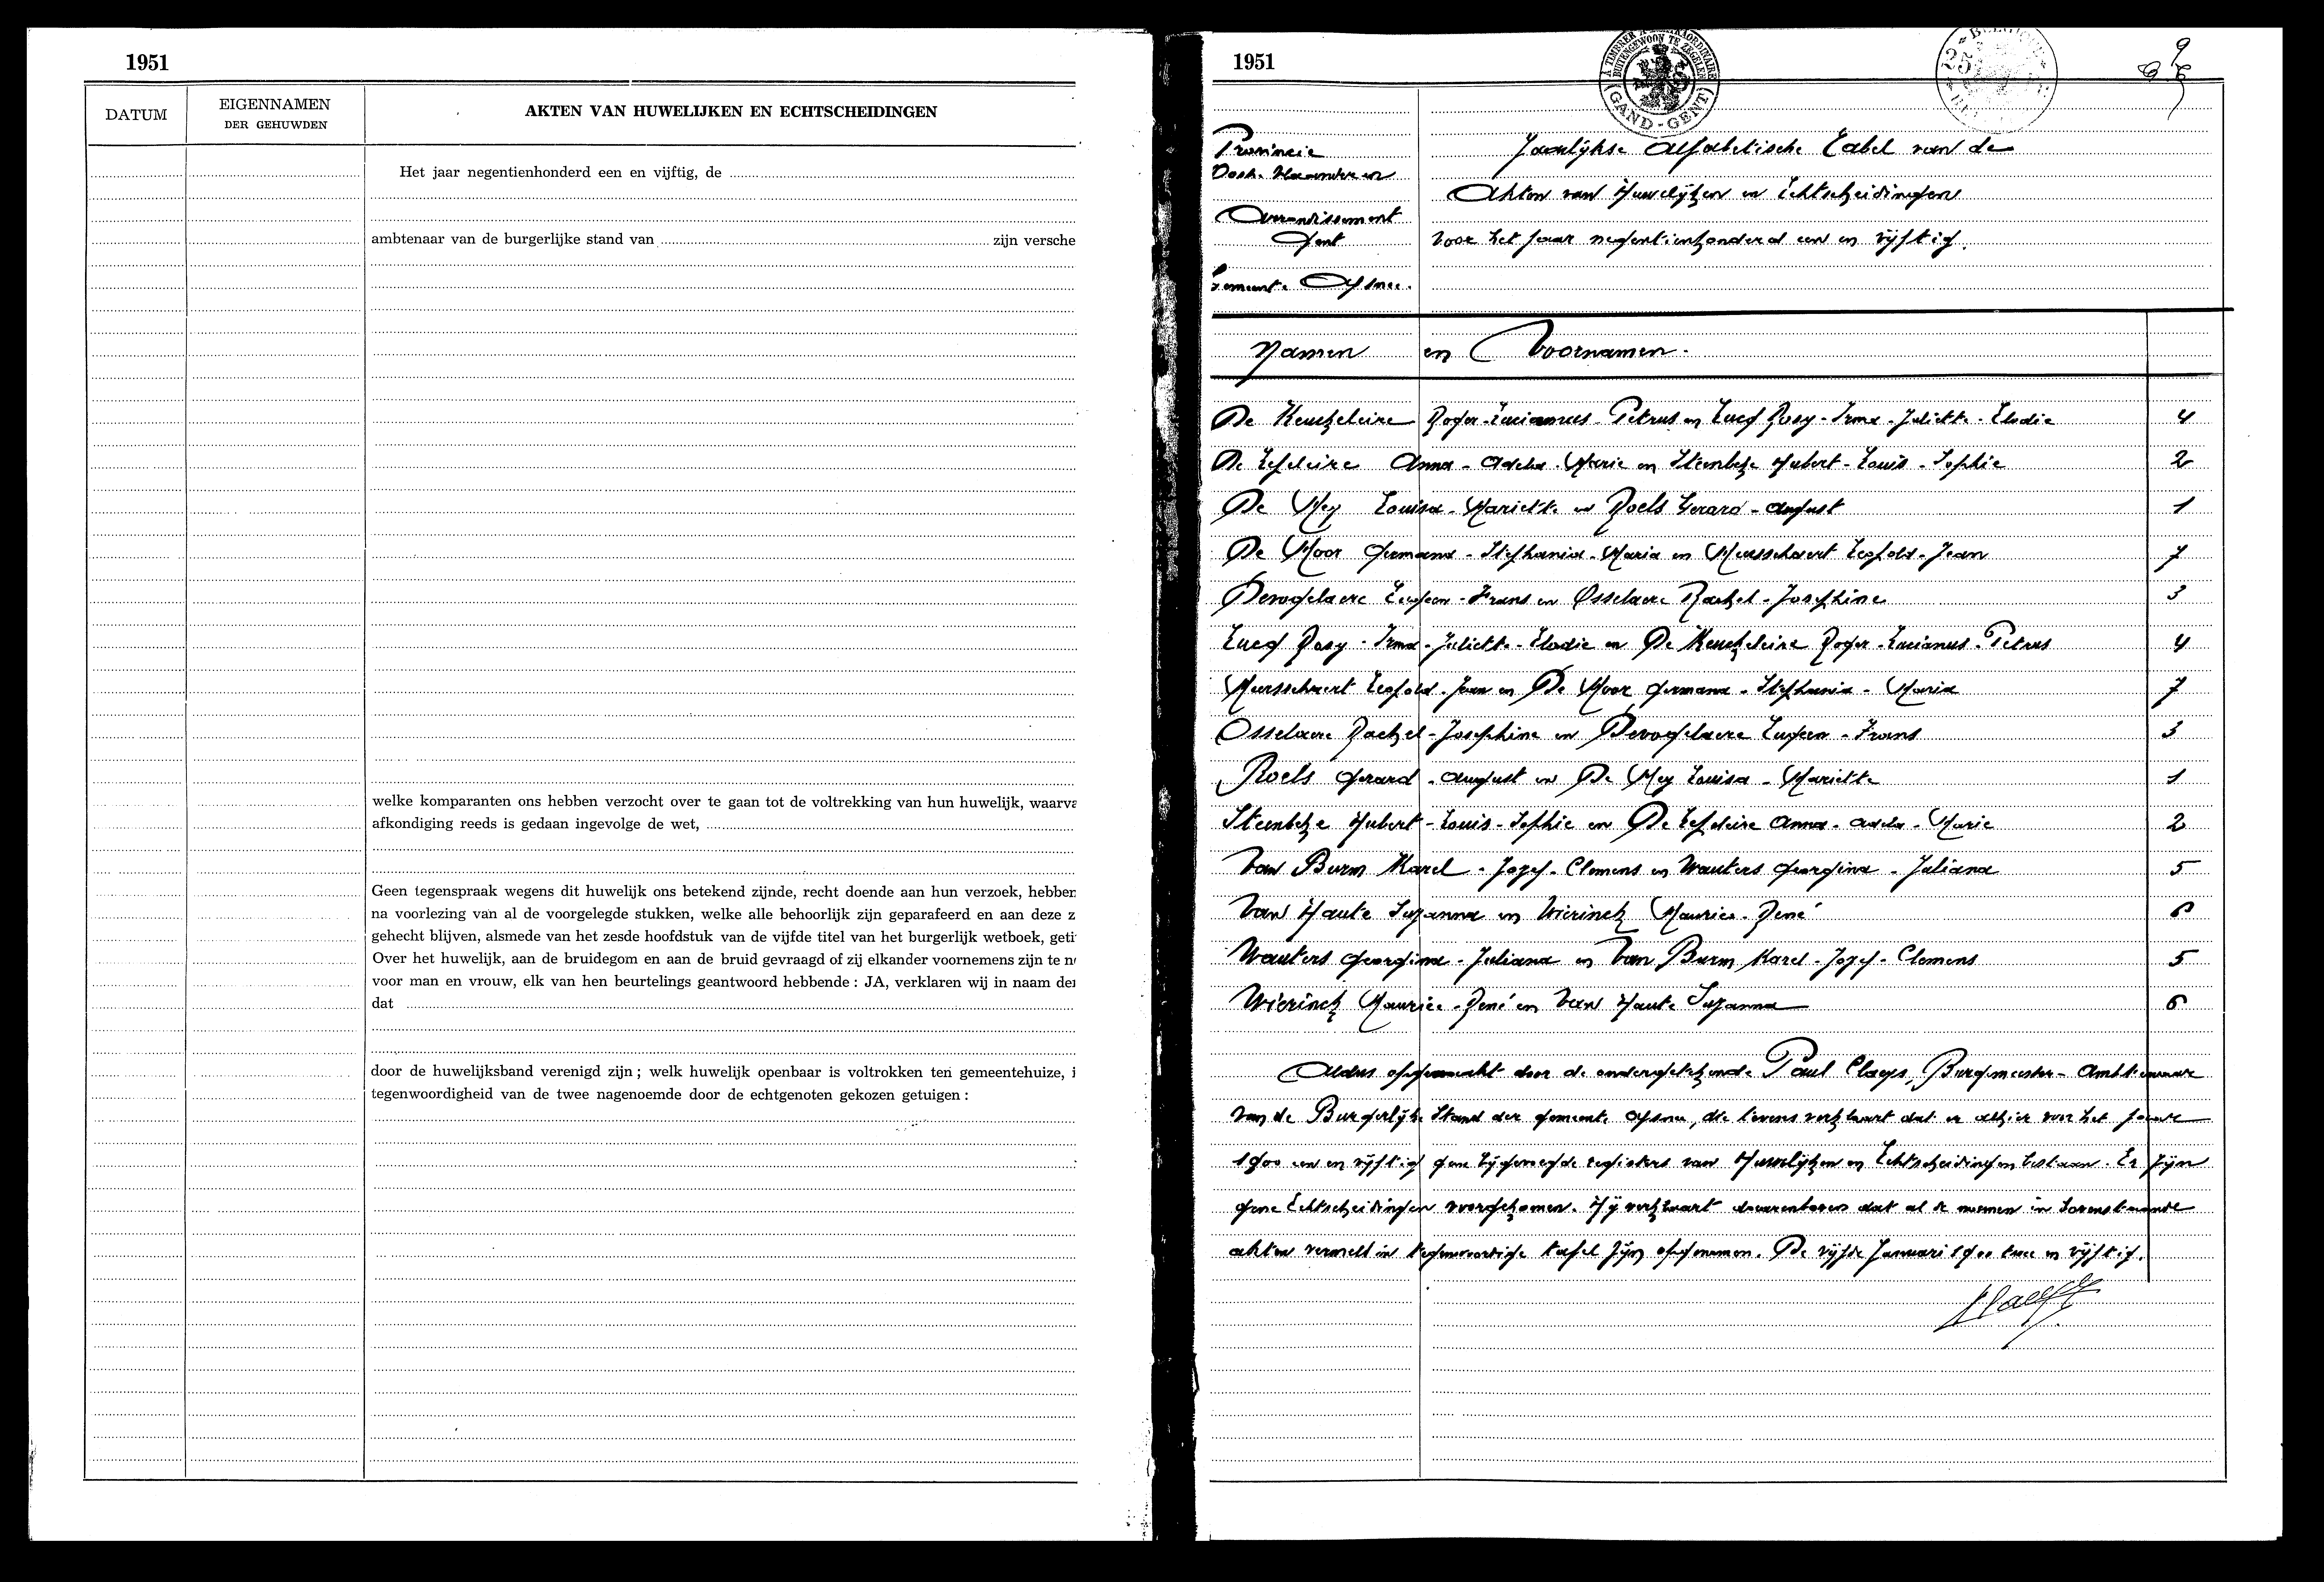 1951
DATUM
EIGENNAMEN
DER GEHUWDEN
AKTEN VAN HUWELIJKEN EN ECHTSCHEIDINGEN
Het jaar negentienhonderd een en vijftig, de
ambtenaar van de burgerlijke stand van zijn versche
welke komparanten ons hebben verzocht over te gaan tot de voltrekking van hun huwelijk, waarva
afkondiging reeds is gedaan ingevolge de wet,
Geen tegenspraak wegens dit huwelijk ons betekend zijnde, recht doende aan hun verzoek, hebben
na voorlezing van al de voorgelegde stukken, welke alle behoorlijk zijn geparafeerd en aan deze z
gehecht blijven, alsmede van het zesde hoofdstuk van de vijfde titel van het burgerlijk wetboek, geti
Over het huwelijk, aan de bruidegom en aan de bruid gevraagd of zij elkander voornemens zijn te n
voor man en vrouw, elk van hen beurtelings geantwoord hebbende : JA, verklaren wij in naam der
dat
door de huwelijksband verenigd zijn ; welk huwelijk openbaar is voltrokken ten gemeentehuize, i
tegenwoordigheid van de twee nagenoemde door de echtgenoten gekozen getuigen :
1951
GAND - GENT
Provincie
Oost-Vlaanderen
Arrondissement
Gent
Gemeente Afsnee.
Jaarlijkse Alfabetische Tabel van de
Akten van Huwelijken en Echtscheidingen
voor het jaar negentienhonderd een en vijftig.
Namen en Voornamen.
De Keuckeleire Roger-Lucianus-Petrus en Lucq Rosy-Irma-Juliette-Elodie 4
De Lepeleire Anna-Adela-Marie en Steenbeke Hubert-Louis-Sophie 2
De Mey Louisa-Mariette en Roels Gerard-August 1
De Moor Germana-Stephania-Maria en Meersschaert Leopold-Jean 7
Devogelaere Eugeen-Frans en Osselaere Rachel-Josephine 3
Lucq Rosy-Irma-Juliette-Elodie en De Keuckeleire Roger-Lucianus-Petrus 4
Meersschaert Leopold-Jean en De Moor Germana-Stephania-Maria 7
Osselaere Rachel-Josephine en Devogelaere Eugeen-Frans 3
Roels Gerard-August en De Mey Louisa-Mariette 1
Steenbeke Hubert-Louis-Sophie en De Lepeleire Anna-Adela-Marie 2
Van Burm Karel-Jozef-Clemens en Wauters Georgina-Juliana 5
Van Haute Suzanna en Wierinck Maurice-René 6
Wauters Georgina-Juliana en Van Burm Karel-Jozef-Clemens 5
Wierinck Maurice-René en Van Haute Suzanna 6
Aldus opgemaakt door de ondergetekende Paul Claeys, Burgemeester-Ambtenaar
van de Burgerlijke Stand der gemeente Afsnee, die tevens verklaart dat er alhier voor het jaar
1900 een en vijftig gene bijgevoegde registers van Huwelijken en Echtscheidingen bestaan. Er zijn
gene Echtscheidingen voorgekomen. Hij verklaart daarenboven dat al de namen in bovenstaande
akten vermeld in tegenwoordige tafel zijn opgenomen. De vijfde Januari 1900 twee en vijftig.